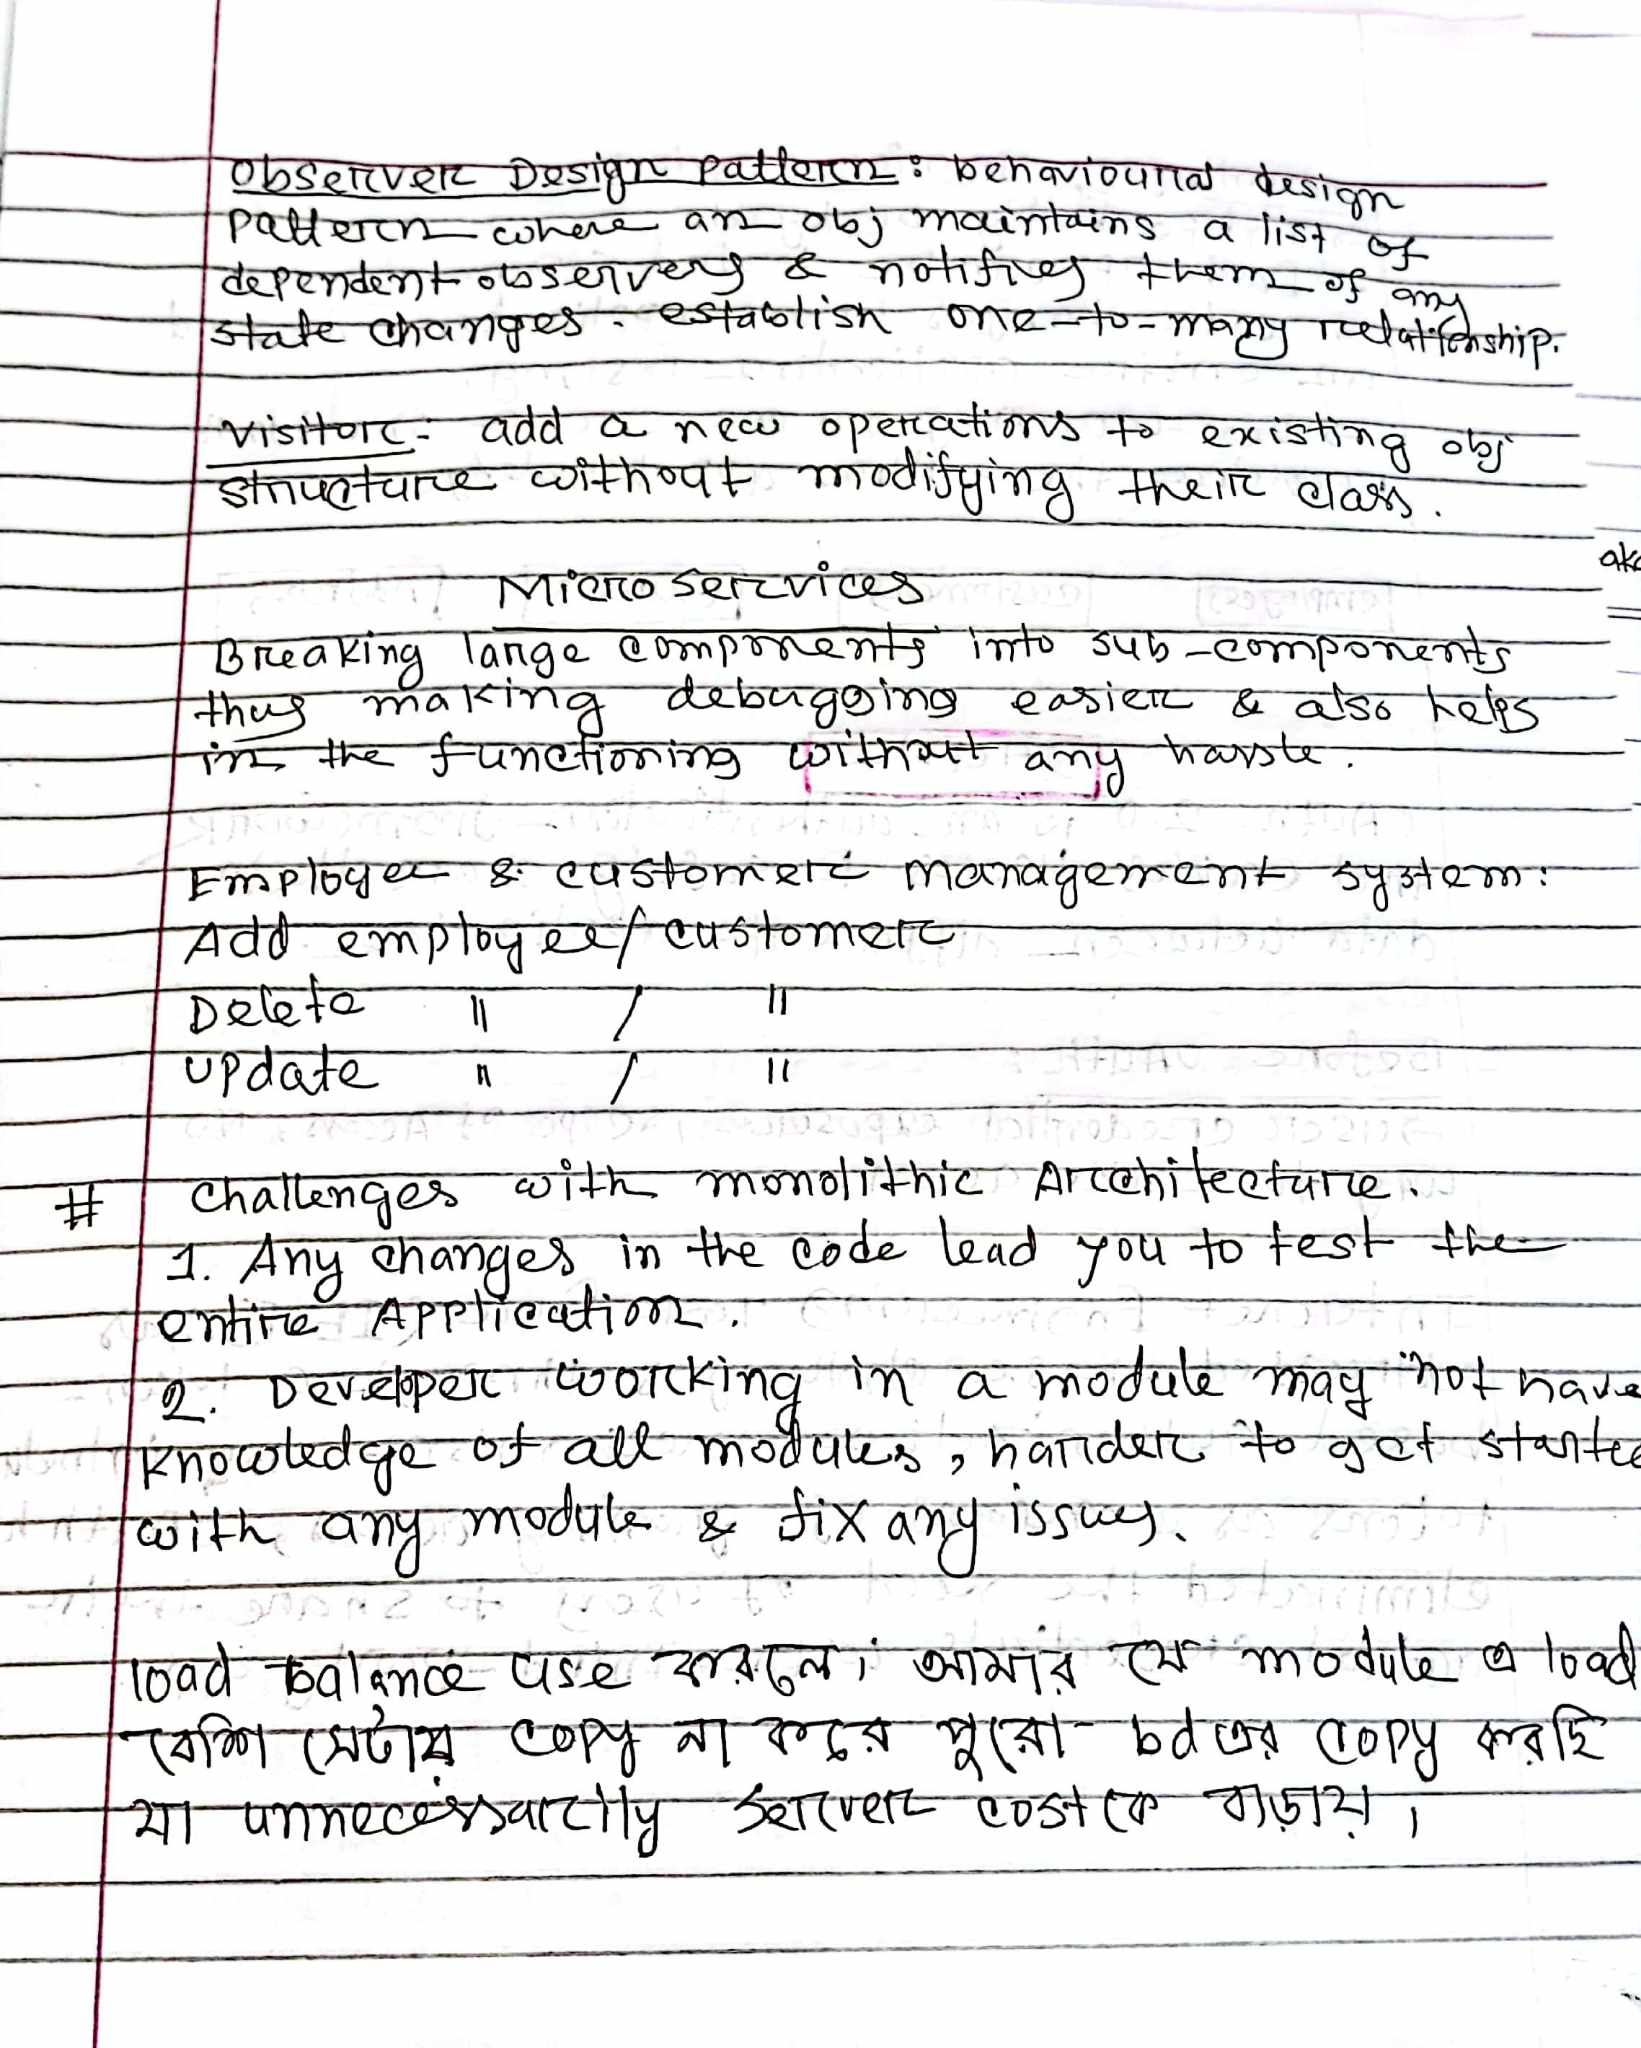 Observer Design Pattern: behavioural design
Pattern where an obj maintains a list of
dependent observers & notifies them of any
state changes. establish one-to-many relationship.
Visitor: add a new operations to existing obj
structure without modifying their class.
Microservices
Breaking large components into sub-components
thus making debugging easier & also helps
in the functioning without any hassle.
Employee & customer management system:
Add employee/customer
Delete " / "
update " / "
# Challenges with monolithic Architecture.
1. Any changes in the code lead you to test the
entire Application.
2. Developer working in a module may not have
knowledge of all modules, harder to get starte
with any module & fix any issues.
load balance use করলে। আমার যে module এ load
বেশি সেটায় copy না করে পুরো bd এর copy করছি
যা unnecessarily server cost কে বাড়ায়।